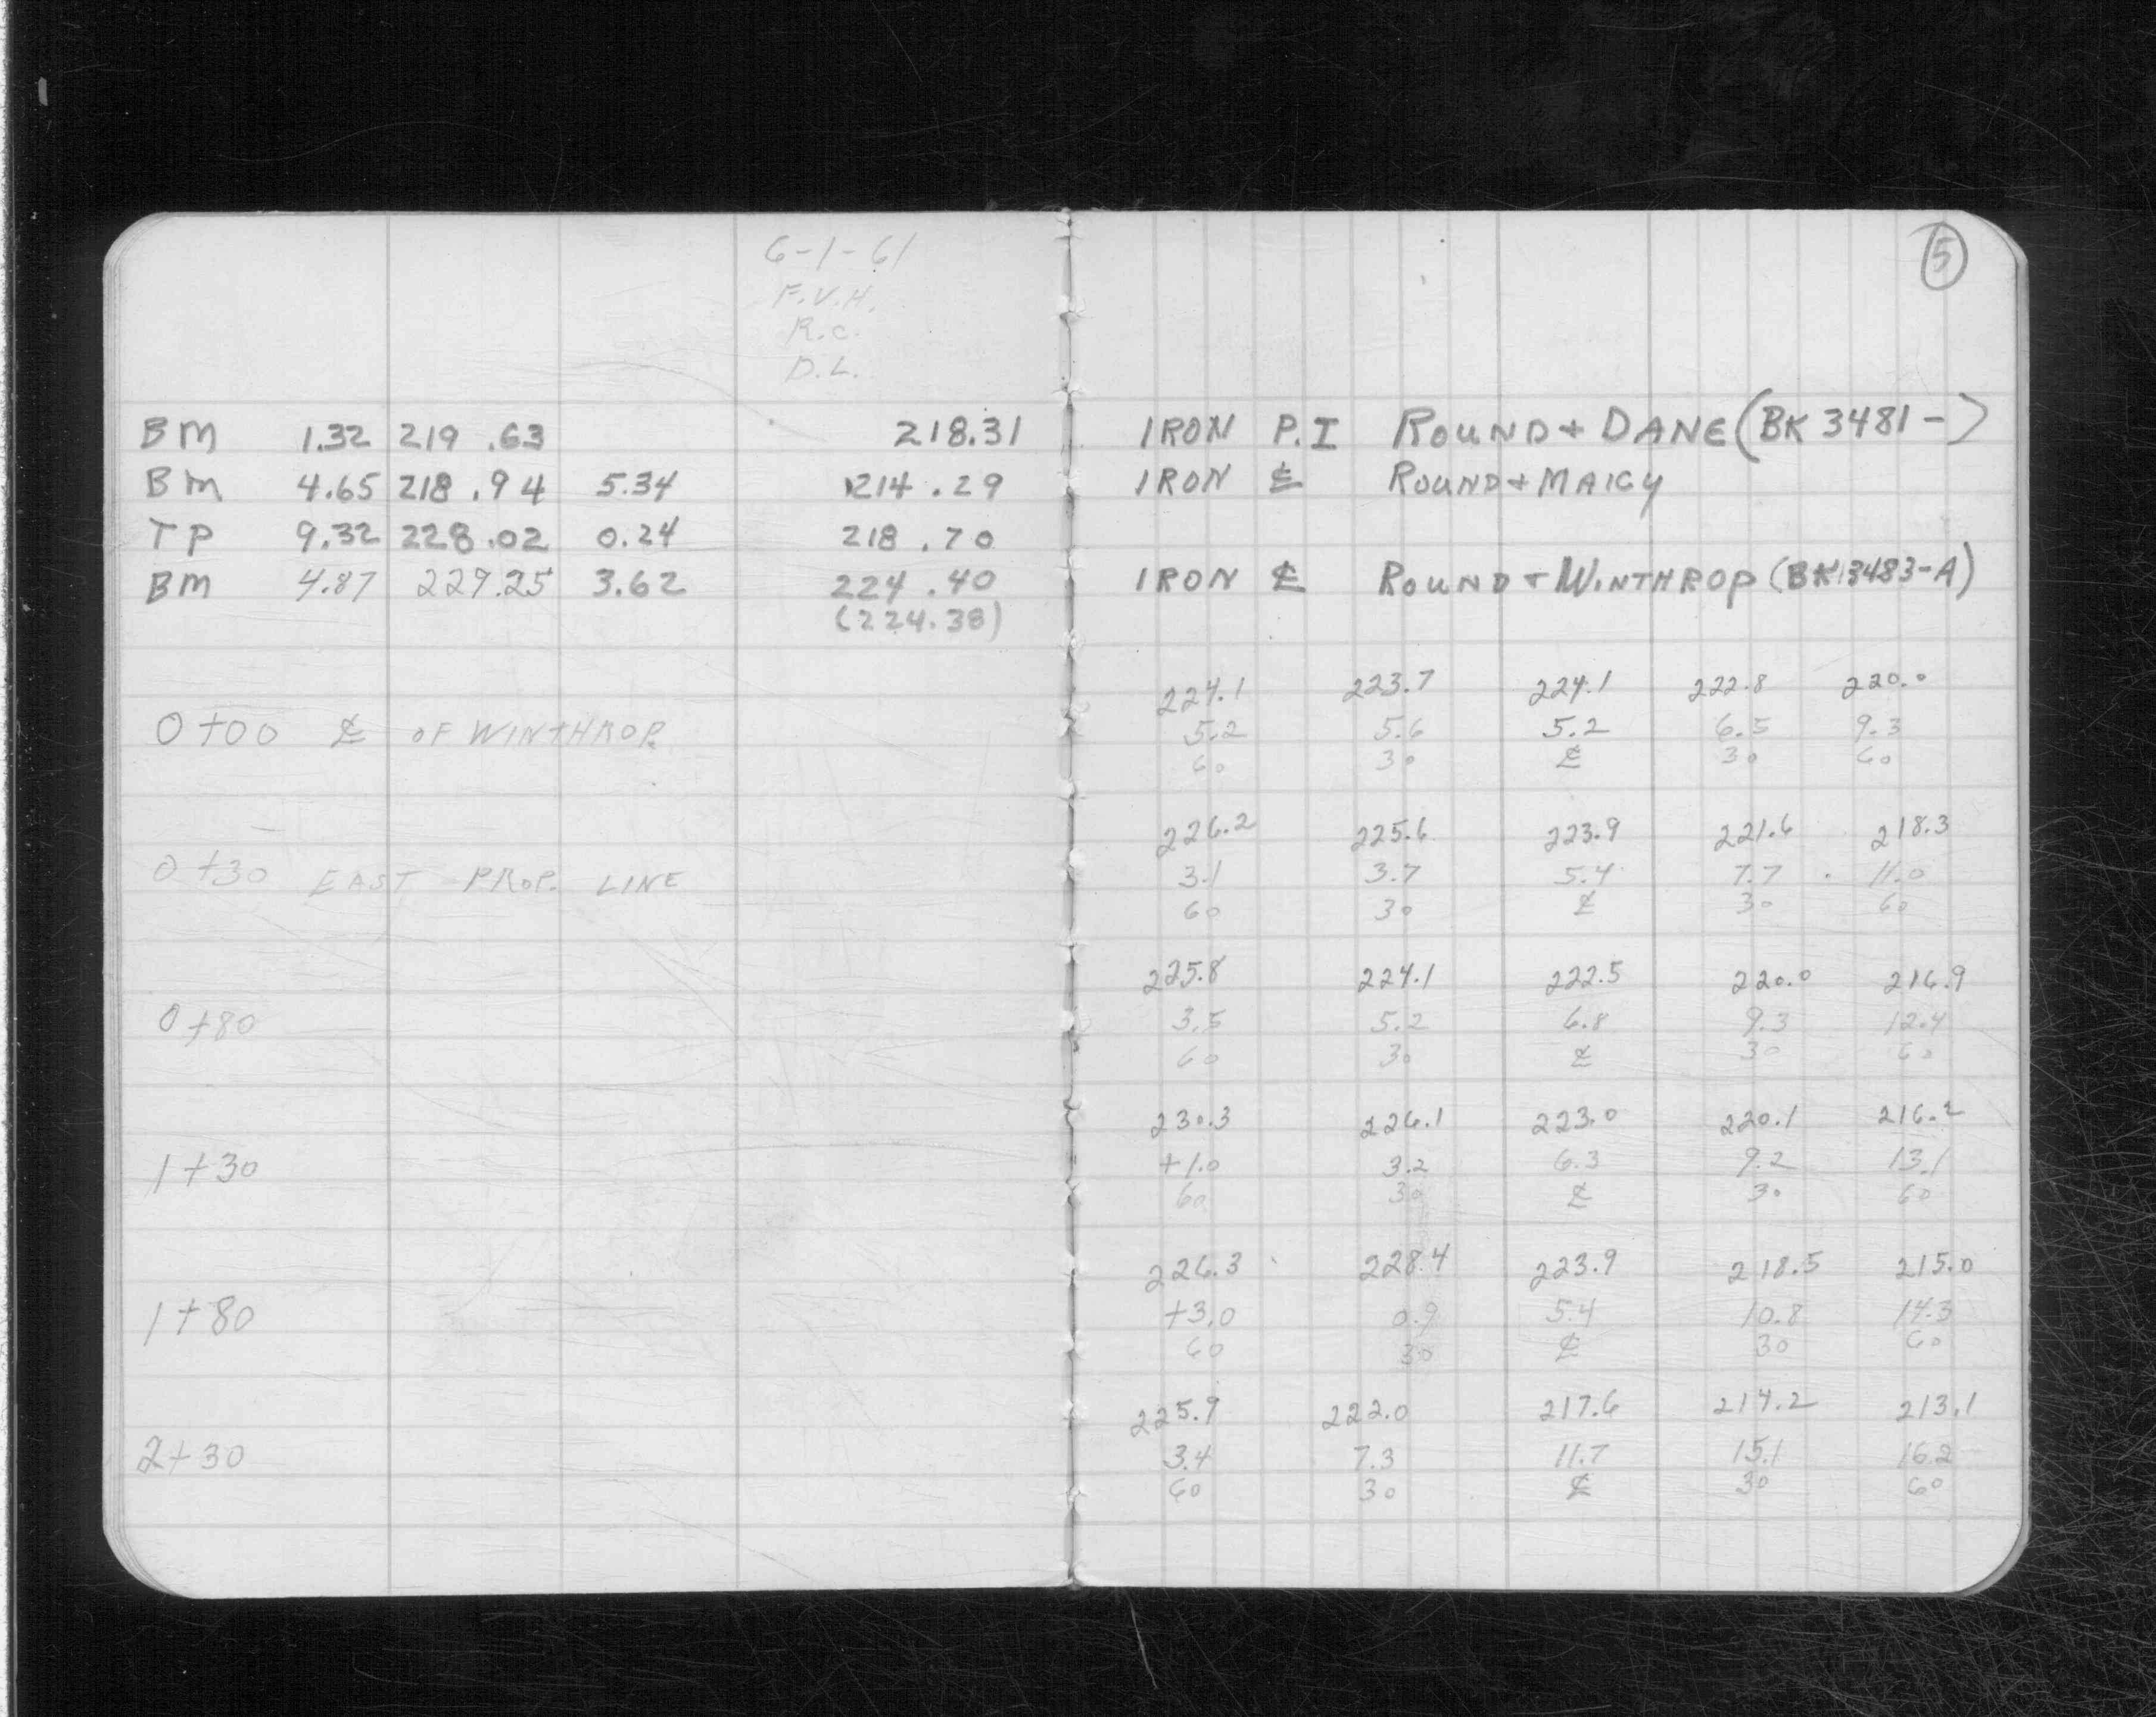 6-1-61
F.V.H.
R.C.
D.L.
BM 1.32 219.63 218.31
BM 4.65 218.94 5.34 214.29
TP 9.32 228.02 0.24 218.70
BM 4.87 229.25 3.62 224.40
(224.38)
0+00 ℄ OF WINTHROP.
0+30 EAST PROP. LINE
0+80
1+30
1+80
2+30
5
IRON P.I ROUND + DANE (BK 3481-)
IRON ℄ ROUND + MAICY
IRON ℄ ROUND + WINTHROP (BK 3483-A)
224.1 223.7 224.1 222.8 220.0
5.2 5.6 5.2 6.5 9.3
60 30 ℄ 30 60
226.2 225.6 223.9 221.6 218.3
3.1 3.7 5.4 7.7 11.0
60 30 ℄ 30 60
225.8 224.1 222.5 220.0 216.9
3.5 5.2 6.8 9.3 12.4
60 30 ℄ 30 60
230.3 226.1 223.0 220.1 216.2
+1.0 3.2 6.3 9.2 13.1
60 30 ℄ 30 60
226.3 228.4 223.9 218.5 215.0
+3.0 0.9 5.4 10.8 14.3
60 30 ℄ 30 60
225.9 222.0 217.6 214.2 213.1
3.4 7.3 11.7 15.1 16.2
60 30 ℄ 30 60